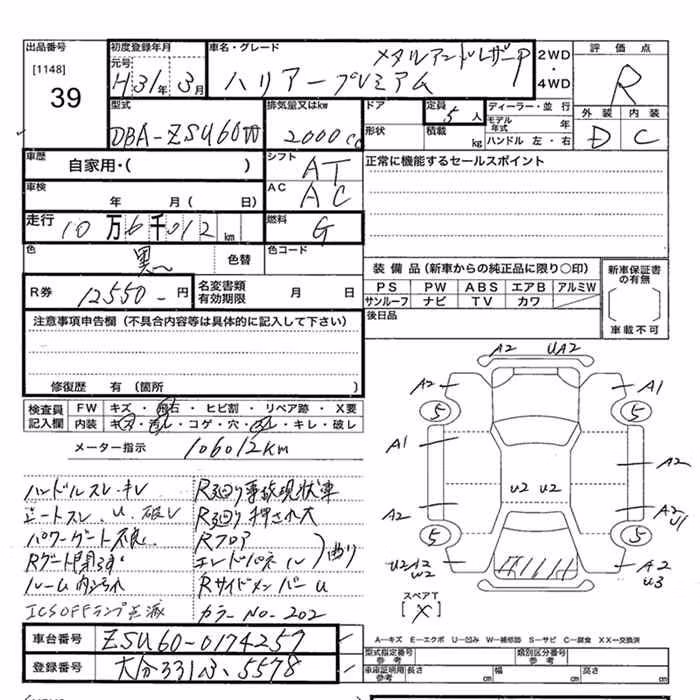 出品番号
[1148]
39
初度登録年月
元号
H31年 3月
車名・グレード
メタルアンドレザーP
ハリアープレミアム
2WD
・
4WD
評価点
R
外装 内装
D C
型式
DBA-ZSU60W
排気量又はkw
2000cc
ドア
形状
定員
5人
積載 kg
ディーラー・並行
モデル年式 年
ハンドル 左・右
車歴
自家用・( )
シフト
AT
正常に機能するセールスポイント
車検
年 月( 日)
AC
AC
走行
10万6千012km
燃料
G
色
黒
色替
色コード
R券
12550-円
名変書類有効期限
月 日
装備品(新車からの純正品に限り○印)
PS PW ABS エアB アルミW
サンルーフ ナビ TV カワ
新車保証書の有無
車載不可
後日品
注意事項申告欄(不具合内容等は具体的に記入して下さい)
修復歴 有(箇所 )
検査員記入欄
FW キズ・飛石・ヒビ割・リペア跡・X要
内装 キズ・汚レ・コゲ・穴・スレ・キレ・破レ
メーター指示 106012KM
ハンドルスレ・キレ
シートスレ、U、破レ
パワーゲート不良
Rゲート閉
ルーム内
ICSOFFランプ点滅
R廻り事故現状車
R廻り押され大
Rフロア
エンドパネル
曲り
RサイドメンバーU
カラーNo-202
A2 UA2
A2 A1
5 5
A1 A2
U2 U2
A2 A2
U1
5 5
U2 A2
W2
A2
U3
スペアT
[X]
A―キズ E―エクボ U―凹み W―補修跡 S―サビ C―腐食 XX―交換済
車台番号
ZSU60-0174257
登録番号
大分331ね5578
型式指定番号
参考
類別区分番号
参考
車庫証明用
参考
長さ cm
幅 cm
高さ cm